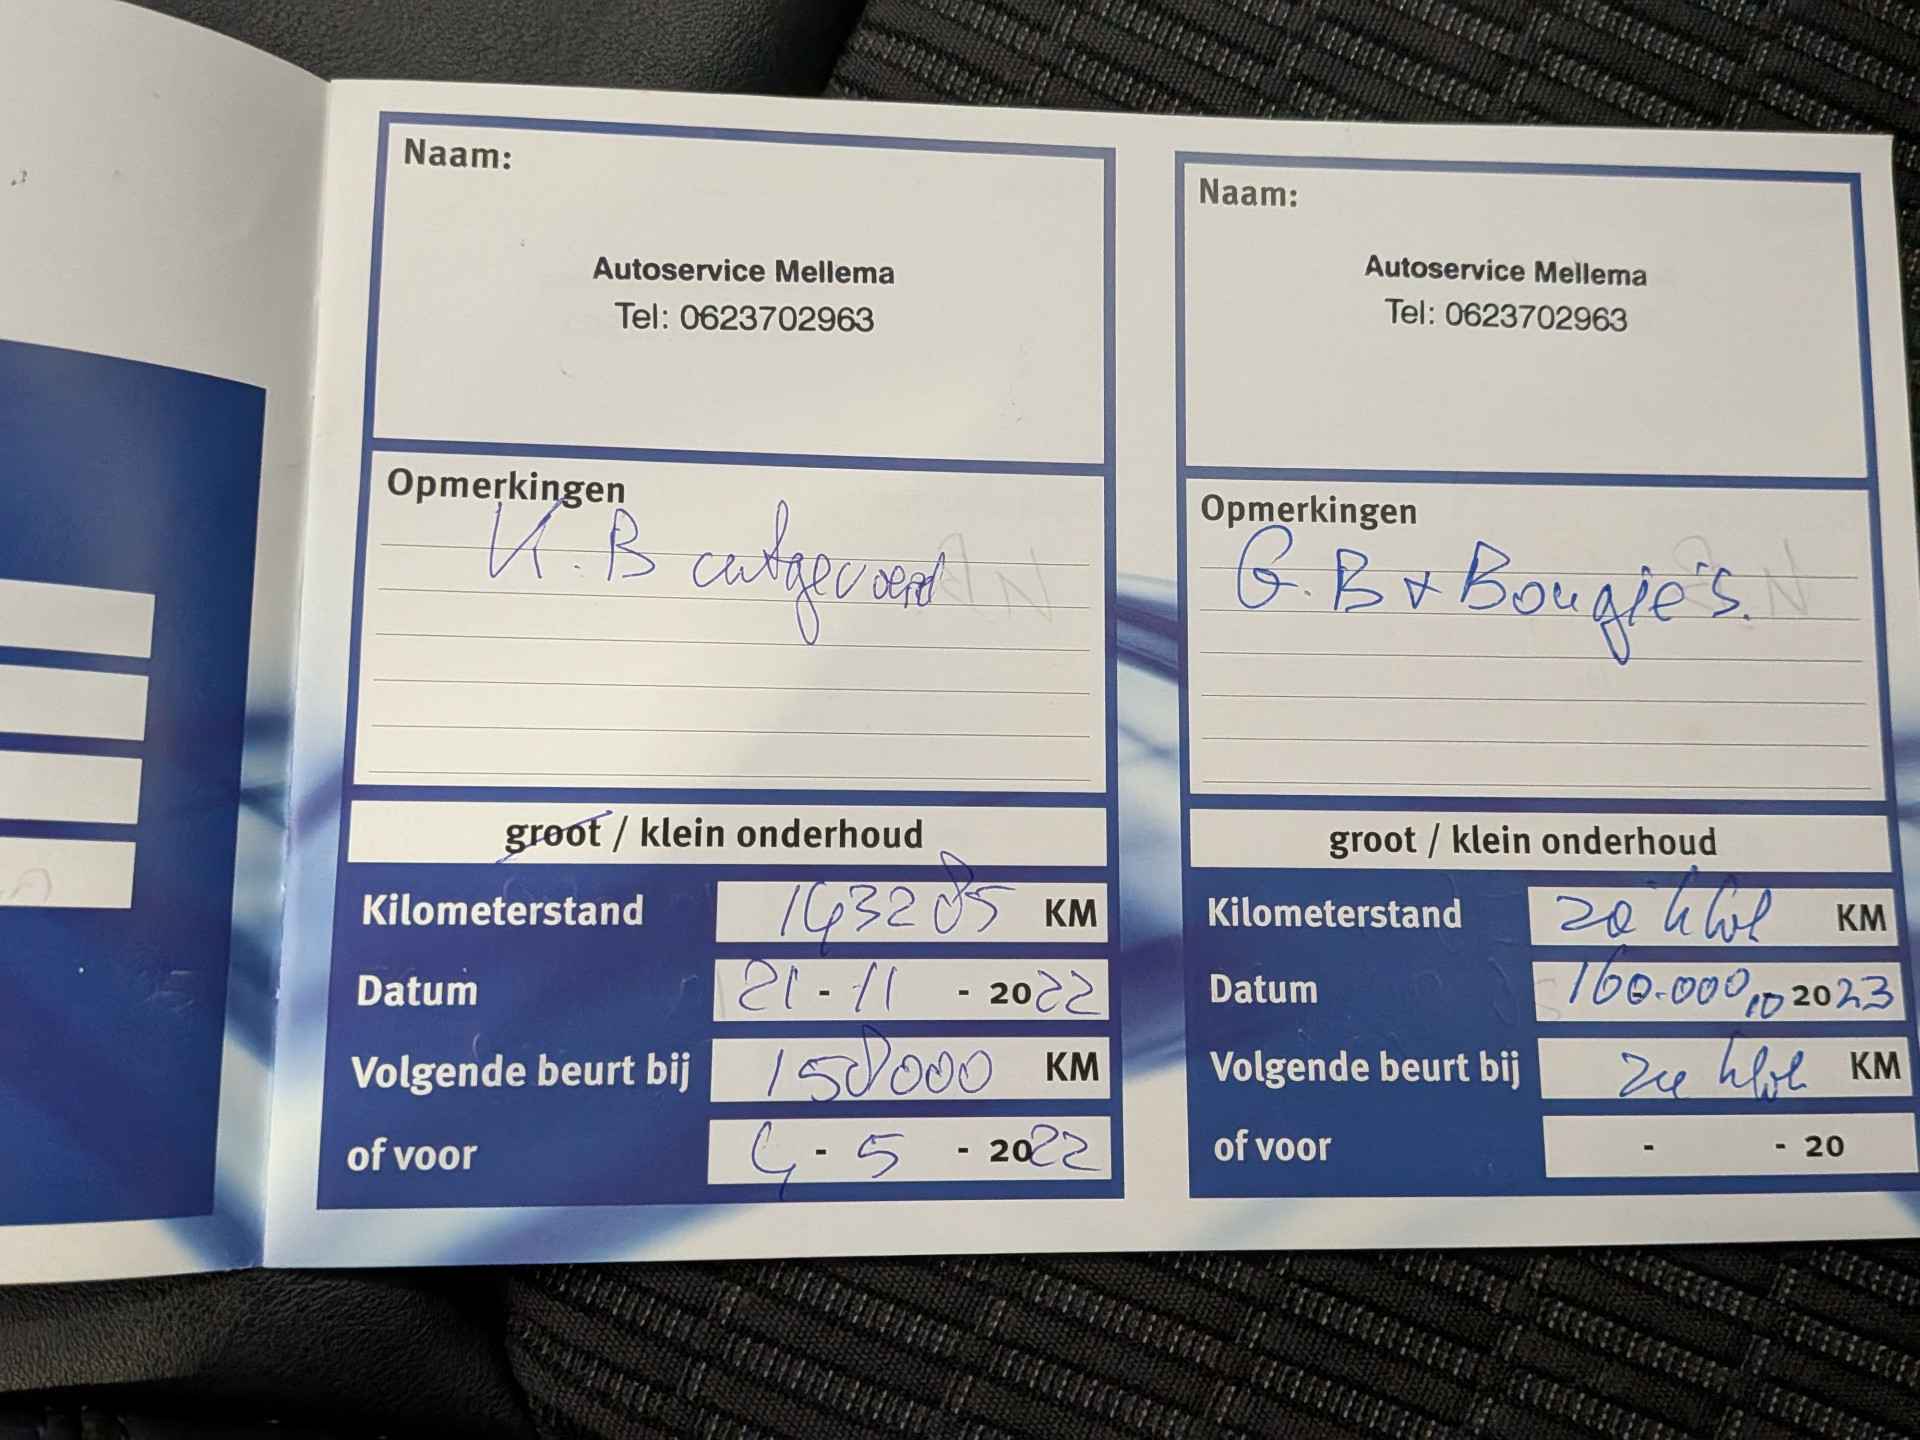 Naam:
Autoservice Mellema
Tel: 0623702963
Opmerkingen
K.B uitgevoerd
groot / klein onderhoud
Kilometerstand 143285 KM
Datum 21 - 11 - 2022
Volgende beurt bij 158000 KM
of voor 4 - 5 - 2022
Naam:
Autoservice Mellema
Tel: 0623702963
Opmerkingen
G.B + Bougie's.
groot / klein onderhoud
Kilometerstand KM
Datum 160.000 10 2023
Volgende beurt bij KM
of voor - - 20